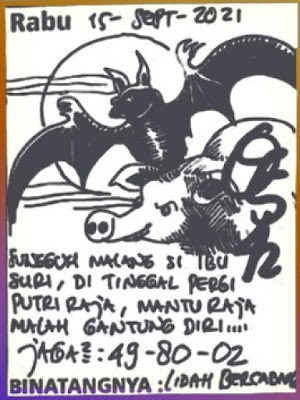 Rabu 15-SEPT-2021
SUNGGUH MALANG SI IBU
SURI, DI TINGGAL PERGI
PUTRI RAJA, MANTU RAJA
MALAH GANTUNG DIRI....
JAGA²: 49-80-02
BINATANGNYA : LIDAH BERCABANG